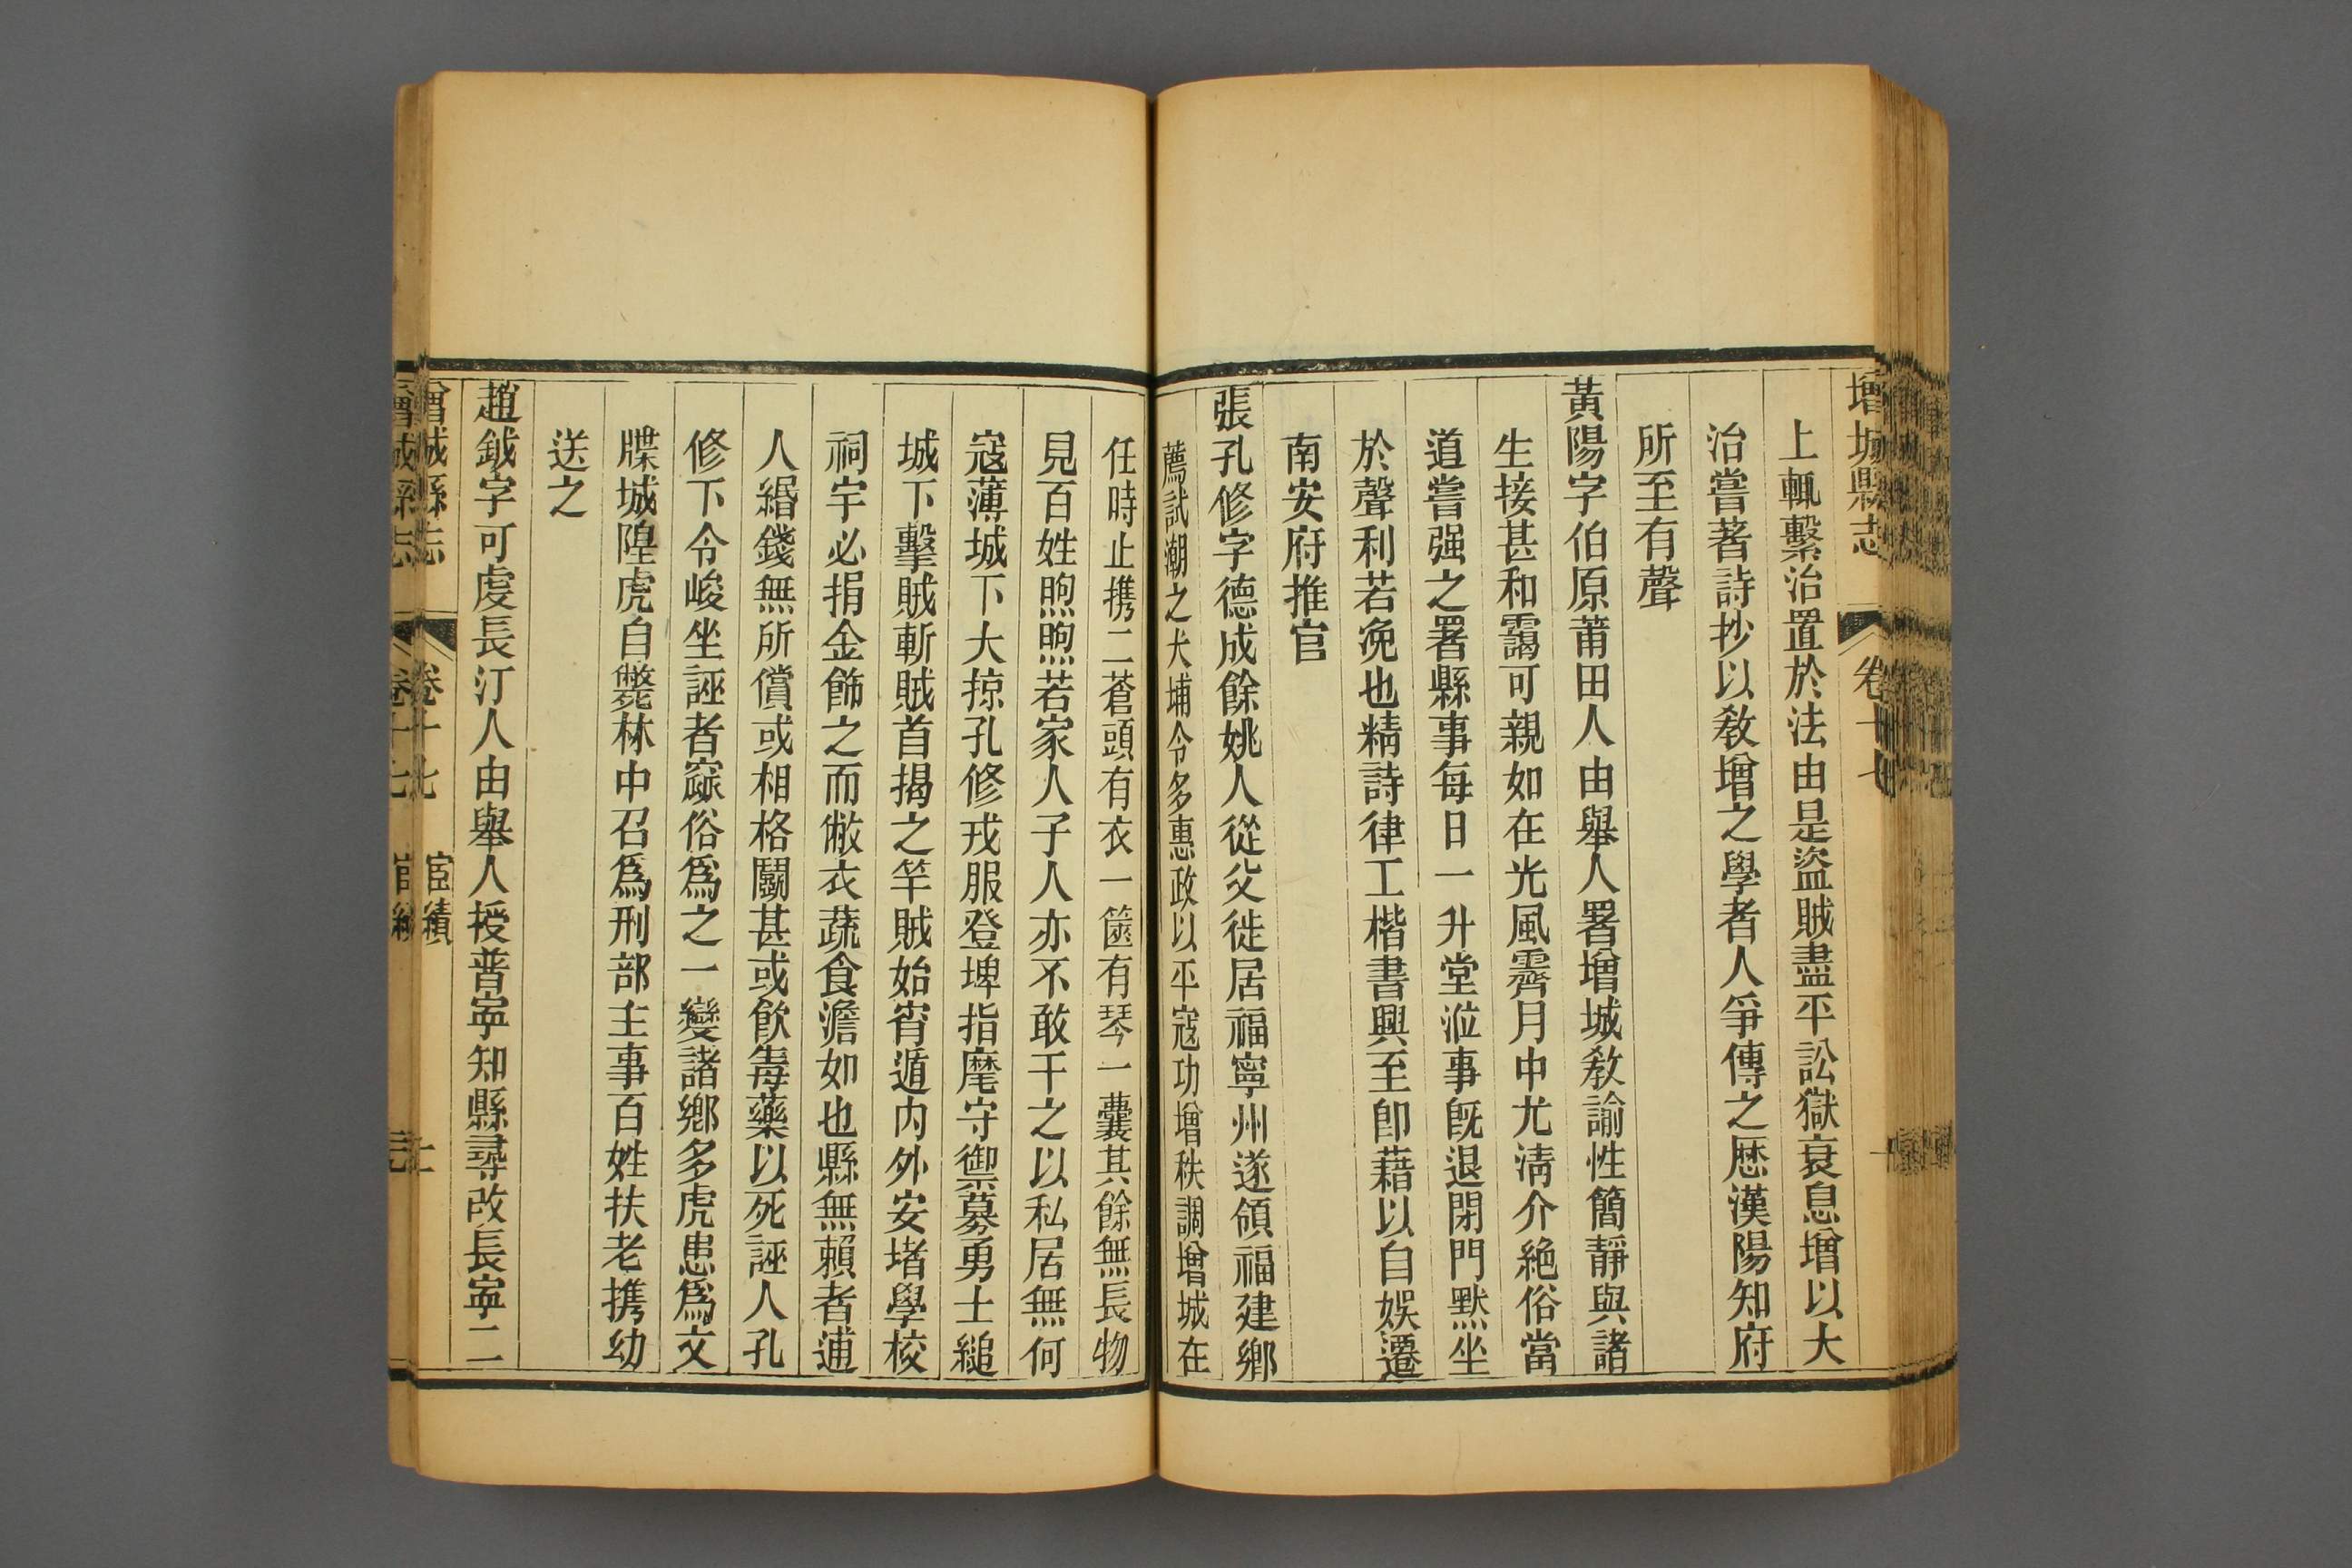 增城縣志
卷十七
上輒繫治置於法由是盜賊盡平訟獄衰息增以大
治嘗著詩抄以敎增之學者人爭傳之歷漢陽知府
所至有聲
黃陽字伯原莆田人由舉人署增城敎諭性簡靜與諸
生接甚和靄可親如在光風霽月中尤淸介絕俗當
道嘗强之署縣事每日一升堂涖事旣退閉門默坐
於聲利若浼也精詩律工楷書興至卽藉以自娛遷
南安府推官
張孔修字德成餘姚人從父徙居福寧州遂領福建鄉
薦試潮之大埔令多惠政以平寇功增秩調增城在
任時止攜二蒼頭有衣一篋有琴一囊其餘無長物
見百姓煦煦若家人子人亦不敢干之以私居無何
寇薄城下大掠孔修戎服登埤指麾守禦募勇士縋
城下擊賊斬賊首揭之竿賊始宵遁內外安堵學校
祠宇必捐金飾之而敝衣蔬食澹如也縣無賴者逋
人緡錢無所償或相格鬬甚或飮毒藥以死誣人孔
修下令峻坐誣者竄俗爲之一變諸鄉多虎患爲文
牒城隍虎自斃林中召爲刑部主事百姓扶老攜幼
送之
趙鉞字可虔長汀人由舉人授普寧知縣尋改長寧二
增城縣志
卷十七
宦績